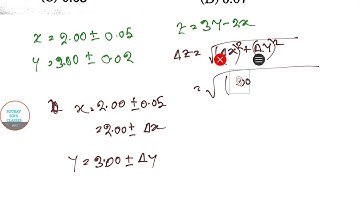 (D) 0.07
x = 2.00 ± 0.05
y = 3.00 ± 0.02
z = 3y - 2x
Δz = √(Δx)² + (Δy)²
= √(
x = 2.00 ± 0.05
= 2.00 ± Δx
y = 3.00 ± Δy
SOURAV
CLASSES